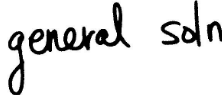 general soln